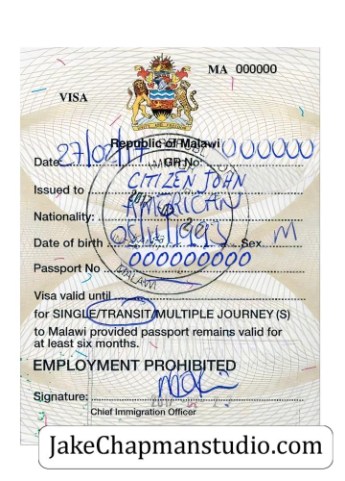 MA 000000
VISA
Republic of Malawi
Date 27/02/17 GR No: 000000
Issued to CITIZEN JOHN
Nationality: AMERICAN
Date of birth Sex M
Passport No 000000000
Visa valid until
for SINGLE/TRANSIT/MULTIPLE JOURNEY (S)
to Malawi provided passport remains valid for
at least six months.
EMPLOYMENT PROHIBITED
Signature:
Chief Immigration Officer
JakeChapmanstudio.com